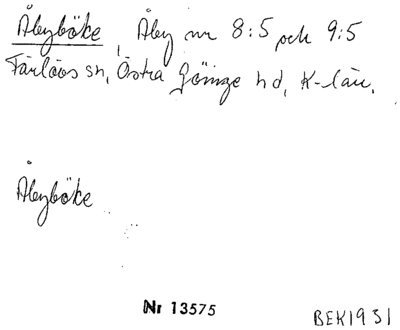 Åbyböke, Åby nr 8:5 och 9:5
Färlövs sn, Östra Göinge hd, K-län.
Åbyböke
Nr 13575
BEK1931